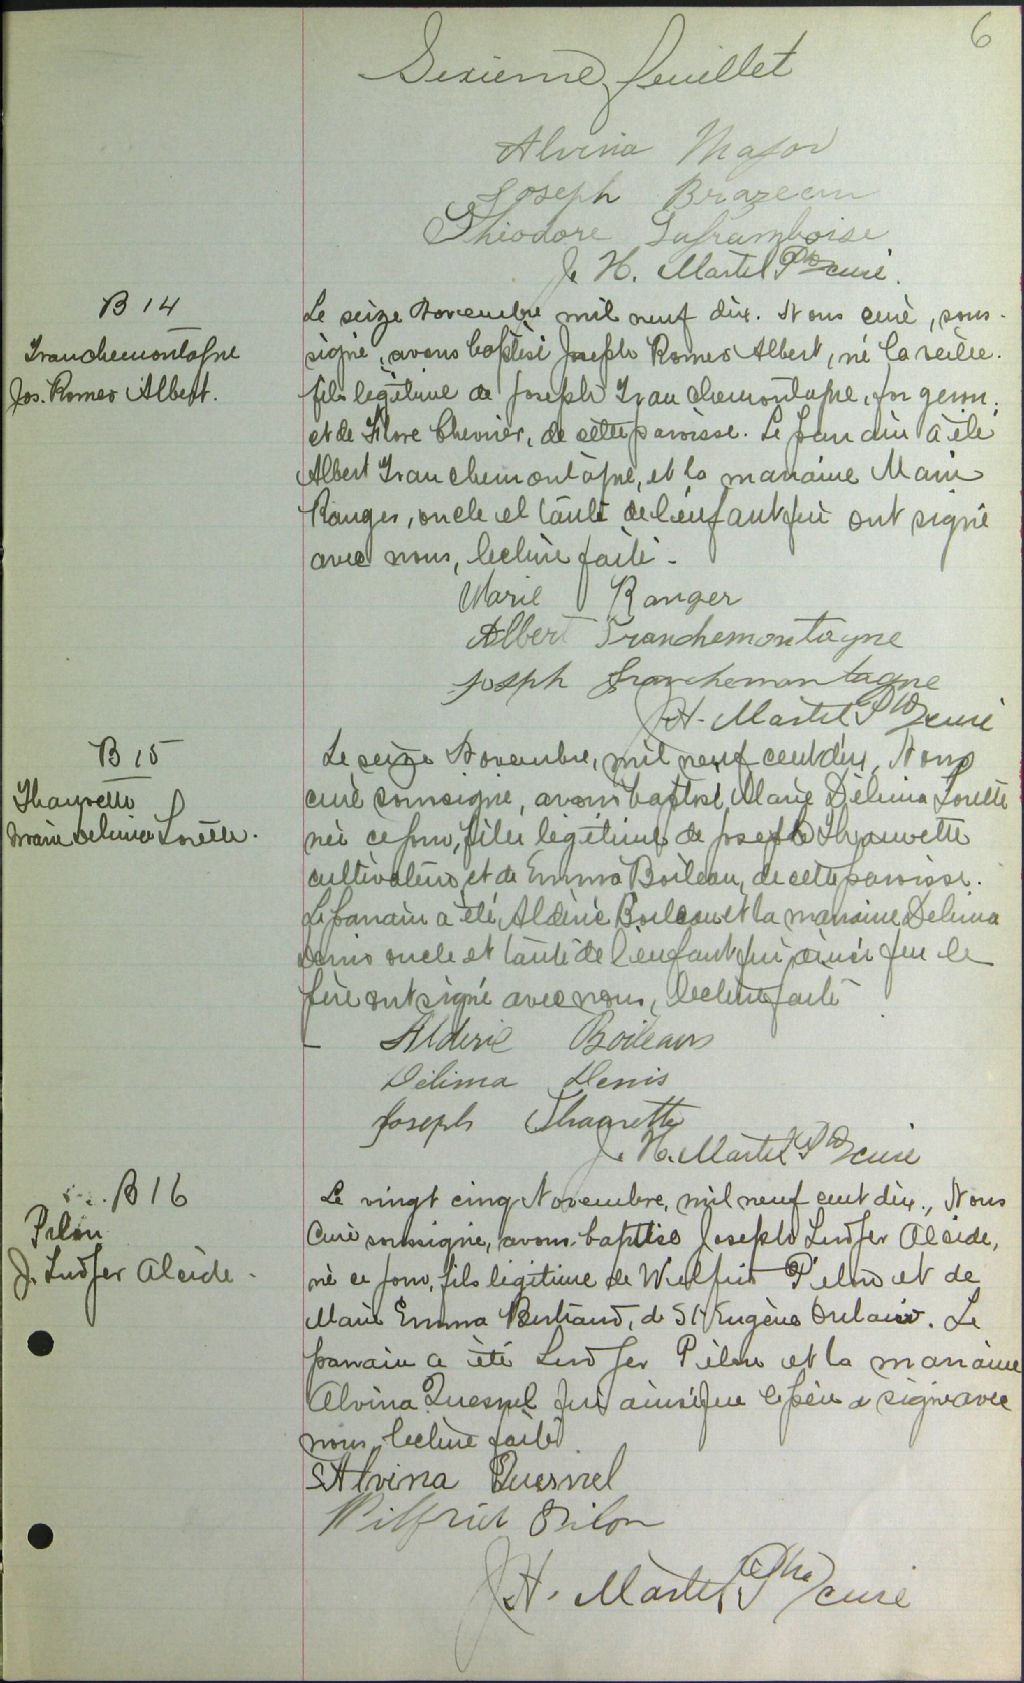 6
Sixieme feuillet
Alvina Major
Joseph Brazeau
Theodore Laframboise
J. H. Martel Ptre curé.
B 14
Franchemontagne
Jos. Romeo Albert.
Le seize Novembre mil neuf dix. Nous curé, sous-
signé, avons baptisé Joseph Romeo Albert, né la veille.
fils légitime de Joseph Franchemontagne, forgeron,
et de Flore Chevrier, de cette paroisse. Le parrain a été
Albert Franchemontagne, et la marraine Marie
Ranger, oncle et tante de l'enfant qui ont signé
avec nous, lecture faite.
Marie Ranger
Albert Franchemontagne
Joseph Franchemontagne
J. H. Martel Ptre curé
B 15
Thauvette
Marie Delima Lorette.
Le seize Novembre, mil neuf cent dix, Nous
curé soussigné, avons baptisé, Marie Délima Lorette
née ce jour, fille légitime de Joseph Thauvette
cultivateur, et de Emma Boileau, de cette paroisse.
Le parrain a été, Aldéric Boileau et la marraine Delima
Denis oncle et tante de l'enfant qui, ainsi que le
père ont signé avec nous, lecture faite
Alderic Boileau
Délima Denis
Joseph Thauvette
J. H. Martel Ptre curé
B 16
Pilon
J. Ludger Alcide.
Le vingt cinq Novembre, mil neuf cent dix, Nous
Curé soussigné, avons baptisé Joseph Ludger Alcide,
né ce jour, fils légitime de Wilfrid Pilon et de
Marie Emma Bertrand, de St Eugène Ontario. Le
parrain a été Ludger Pilon et la marraine
Alvina Quesnel qui ainsi que le père a signé avec
nous, lecture faite
Alvina Quesnel
Wilfrid Pilon
J. H. Martel, Ptre curé